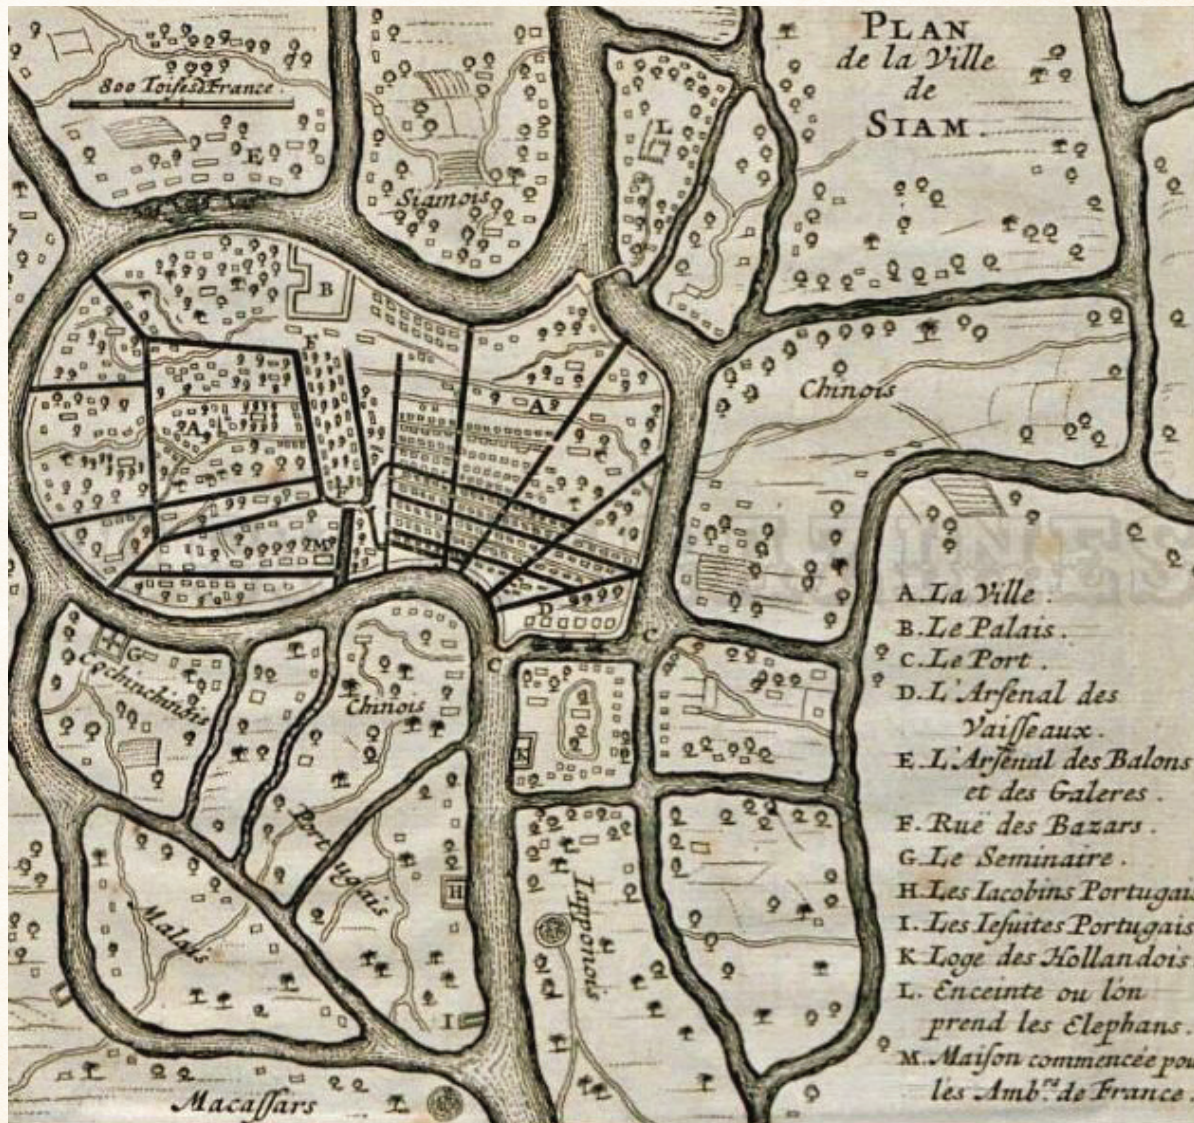 PLAN
de la Ville
de
SIAM.
800 Toises de France.
E
L
Siamois
B
F
A
A
Chinois
F
M
D
C
C
G
Cochinchinois
Chinois
K
Portugais
H
Malais
Iapponois
I
Macassars
A. La Ville.
B. Le Palais.
C. Le Port.
D. L'Arsenal des
Vaisseaux.
E. L'Arsenal des Balons
et des Galeres.
F. Ruë des Bazars.
G. Le Seminaire.
H. Les Iacobins Portugais
I. Les Iesuites Portugais
K. Loge des Hollandois
L. Enceinte ou l'on
prend les Elephans.
M. Maison commencée pou
les Amb.rs de France.